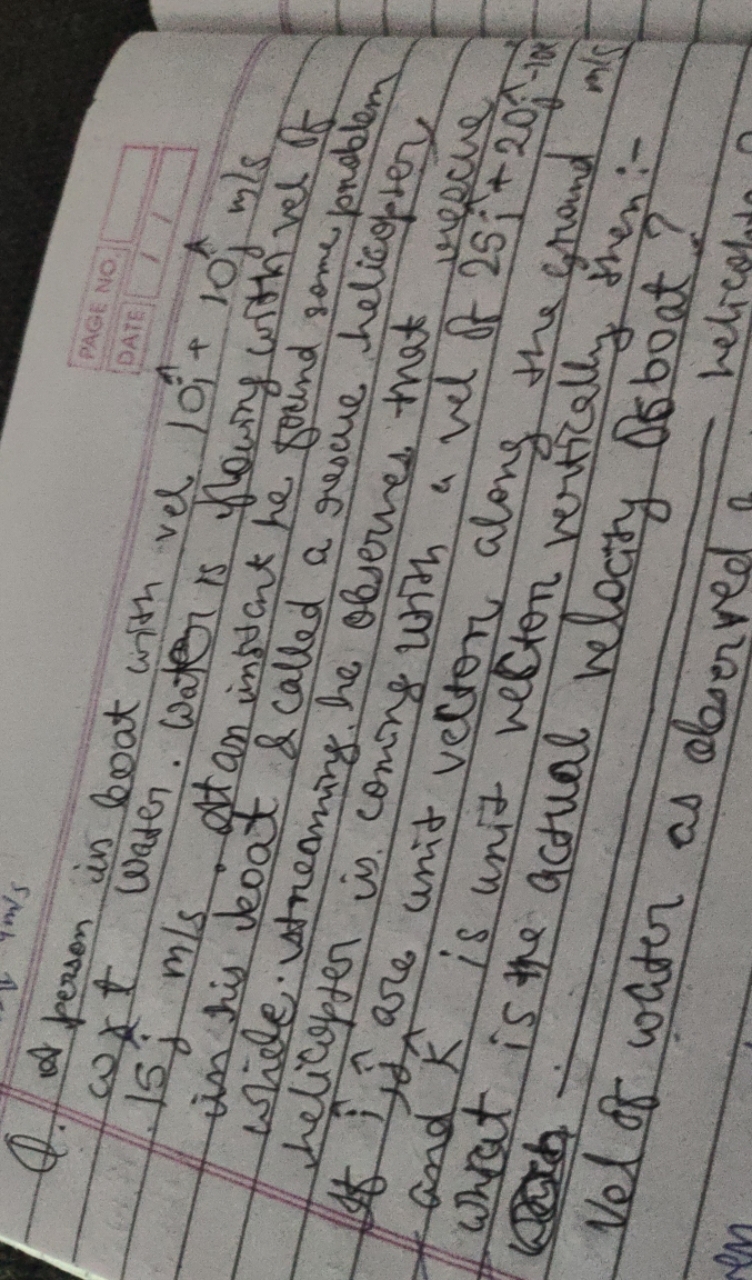 4m/s
PAGE NO.
DATE / /
Q. A person in boat with vel 10î + 10ĵ m/s
w.r.t water. Water is flowing with vel of
15ĵ m/s. At an instant he found some problem
in his boat & called a rescue helicopter
while streaming. he observes that rescue
helicopter is coming with a vel of 25î + 20ĵ - 10k̂ m/s
If î, ĵ are unit vector along the ground
and k̂ is unit vector vertically then:-
what is the actual velocity of boat?
Vel of water as observed helicopter